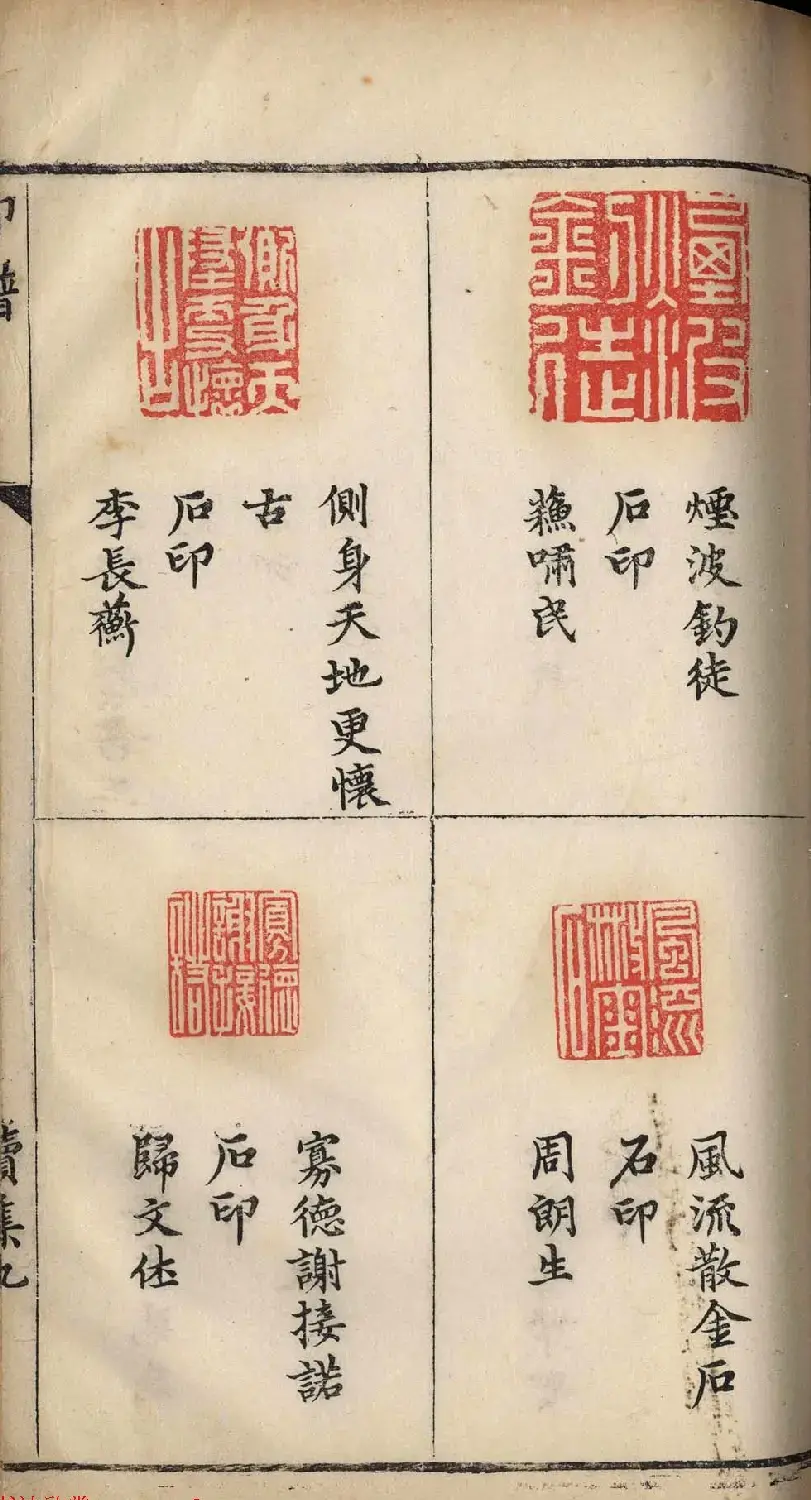 煙波釣徒
石印
蘓嘯民
側身天地更懷
古
石印
李長蘅
風流散金石
石印
周朗生
寡德謝接諾
石印
歸文休
印譜
續集九